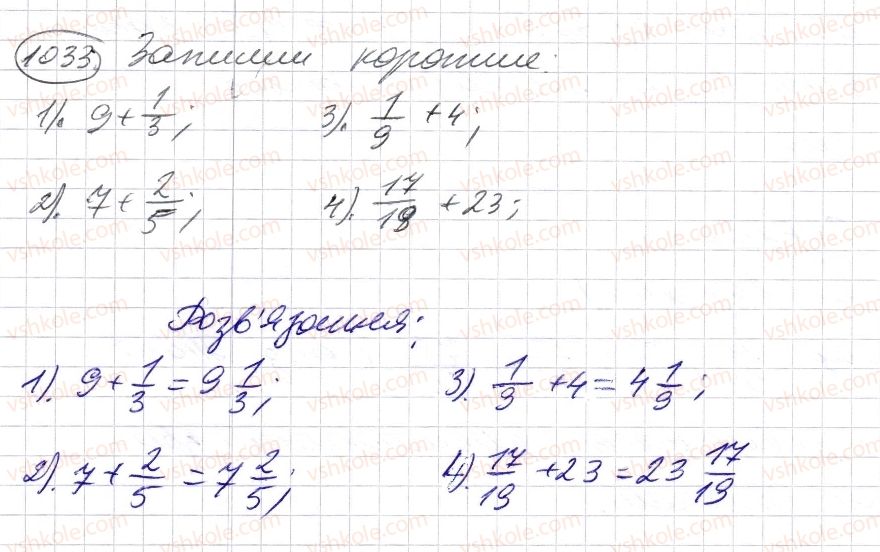 1033. Запиши коротше:
1). 9 + 1/3; 3). 1/9 + 4;
2). 7 + 2/5; 4). 17/19 + 23;
Розв'язання:
1). 9 + 1/3 = 9 1/3; 3). 1/9 + 4 = 4 1/9;
2). 7 + 2/5 = 7 2/5; 4). 17/19 + 23 = 23 17/19
vshkole.com